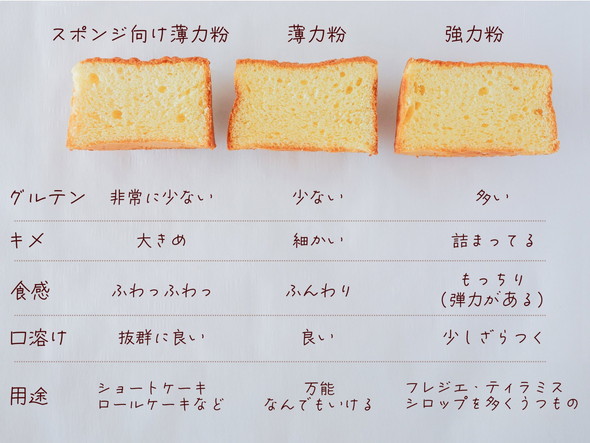 スポンジ向け薄力粉 薄力粉 強力粉
グルテン 非常に少ない 少ない 多い
キメ 大きめ 細かい 詰まってる
食感 ふわっふわっ ふんわり もっちり
(弾力がある)
口溶け 抜群に良い 良い 少しざらつく
用途 ショートケーキ 万能 フレジエ・ティラミス
ロールケーキなど なんでもいける シロップを多くうつもの